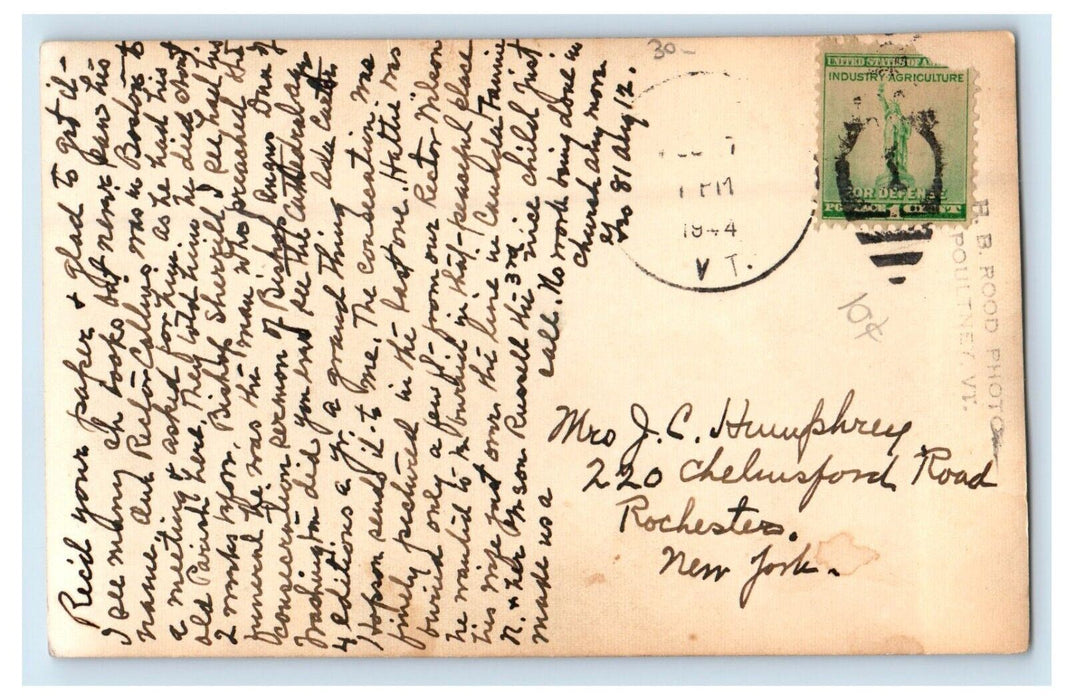 Rec'd your paper & glad to get it-
I see many ch books but never saw his
name. Our Rector Collins was in Boston to
a meeting & asked for him as he had his
old Parish here. They told him he died about
2 weeks before. Bishop Sherrill I see had his
funeral he was the man who preached the
consecration sermon of Bishop Angus Dun of
Washington did you ever see the Cathedral age
4 editions a yr a grand thing Ada Cutts
Hopson sends it to me. The consecration was
finely pictured in the last one. Hattie was
buried only a few from our Rector Wilson
he wanted to be buried in that peaceful place
his wife just over the line in
N. & her son Russell the 3rd nice child just
made us a call. No work being done in
church any more
Yrs 81 Aug 12.
30-
1 PM
1944
VT.
UNITED STATES OF A
INDUSTRY AGRICULTURE
FOR DEFENSE
1
10¢
H. B. ROOD PHOTO
POULTNEY, VT.
Mrs J. C. Humphrey
220 Chelmsford Road
Rochester.
New York.